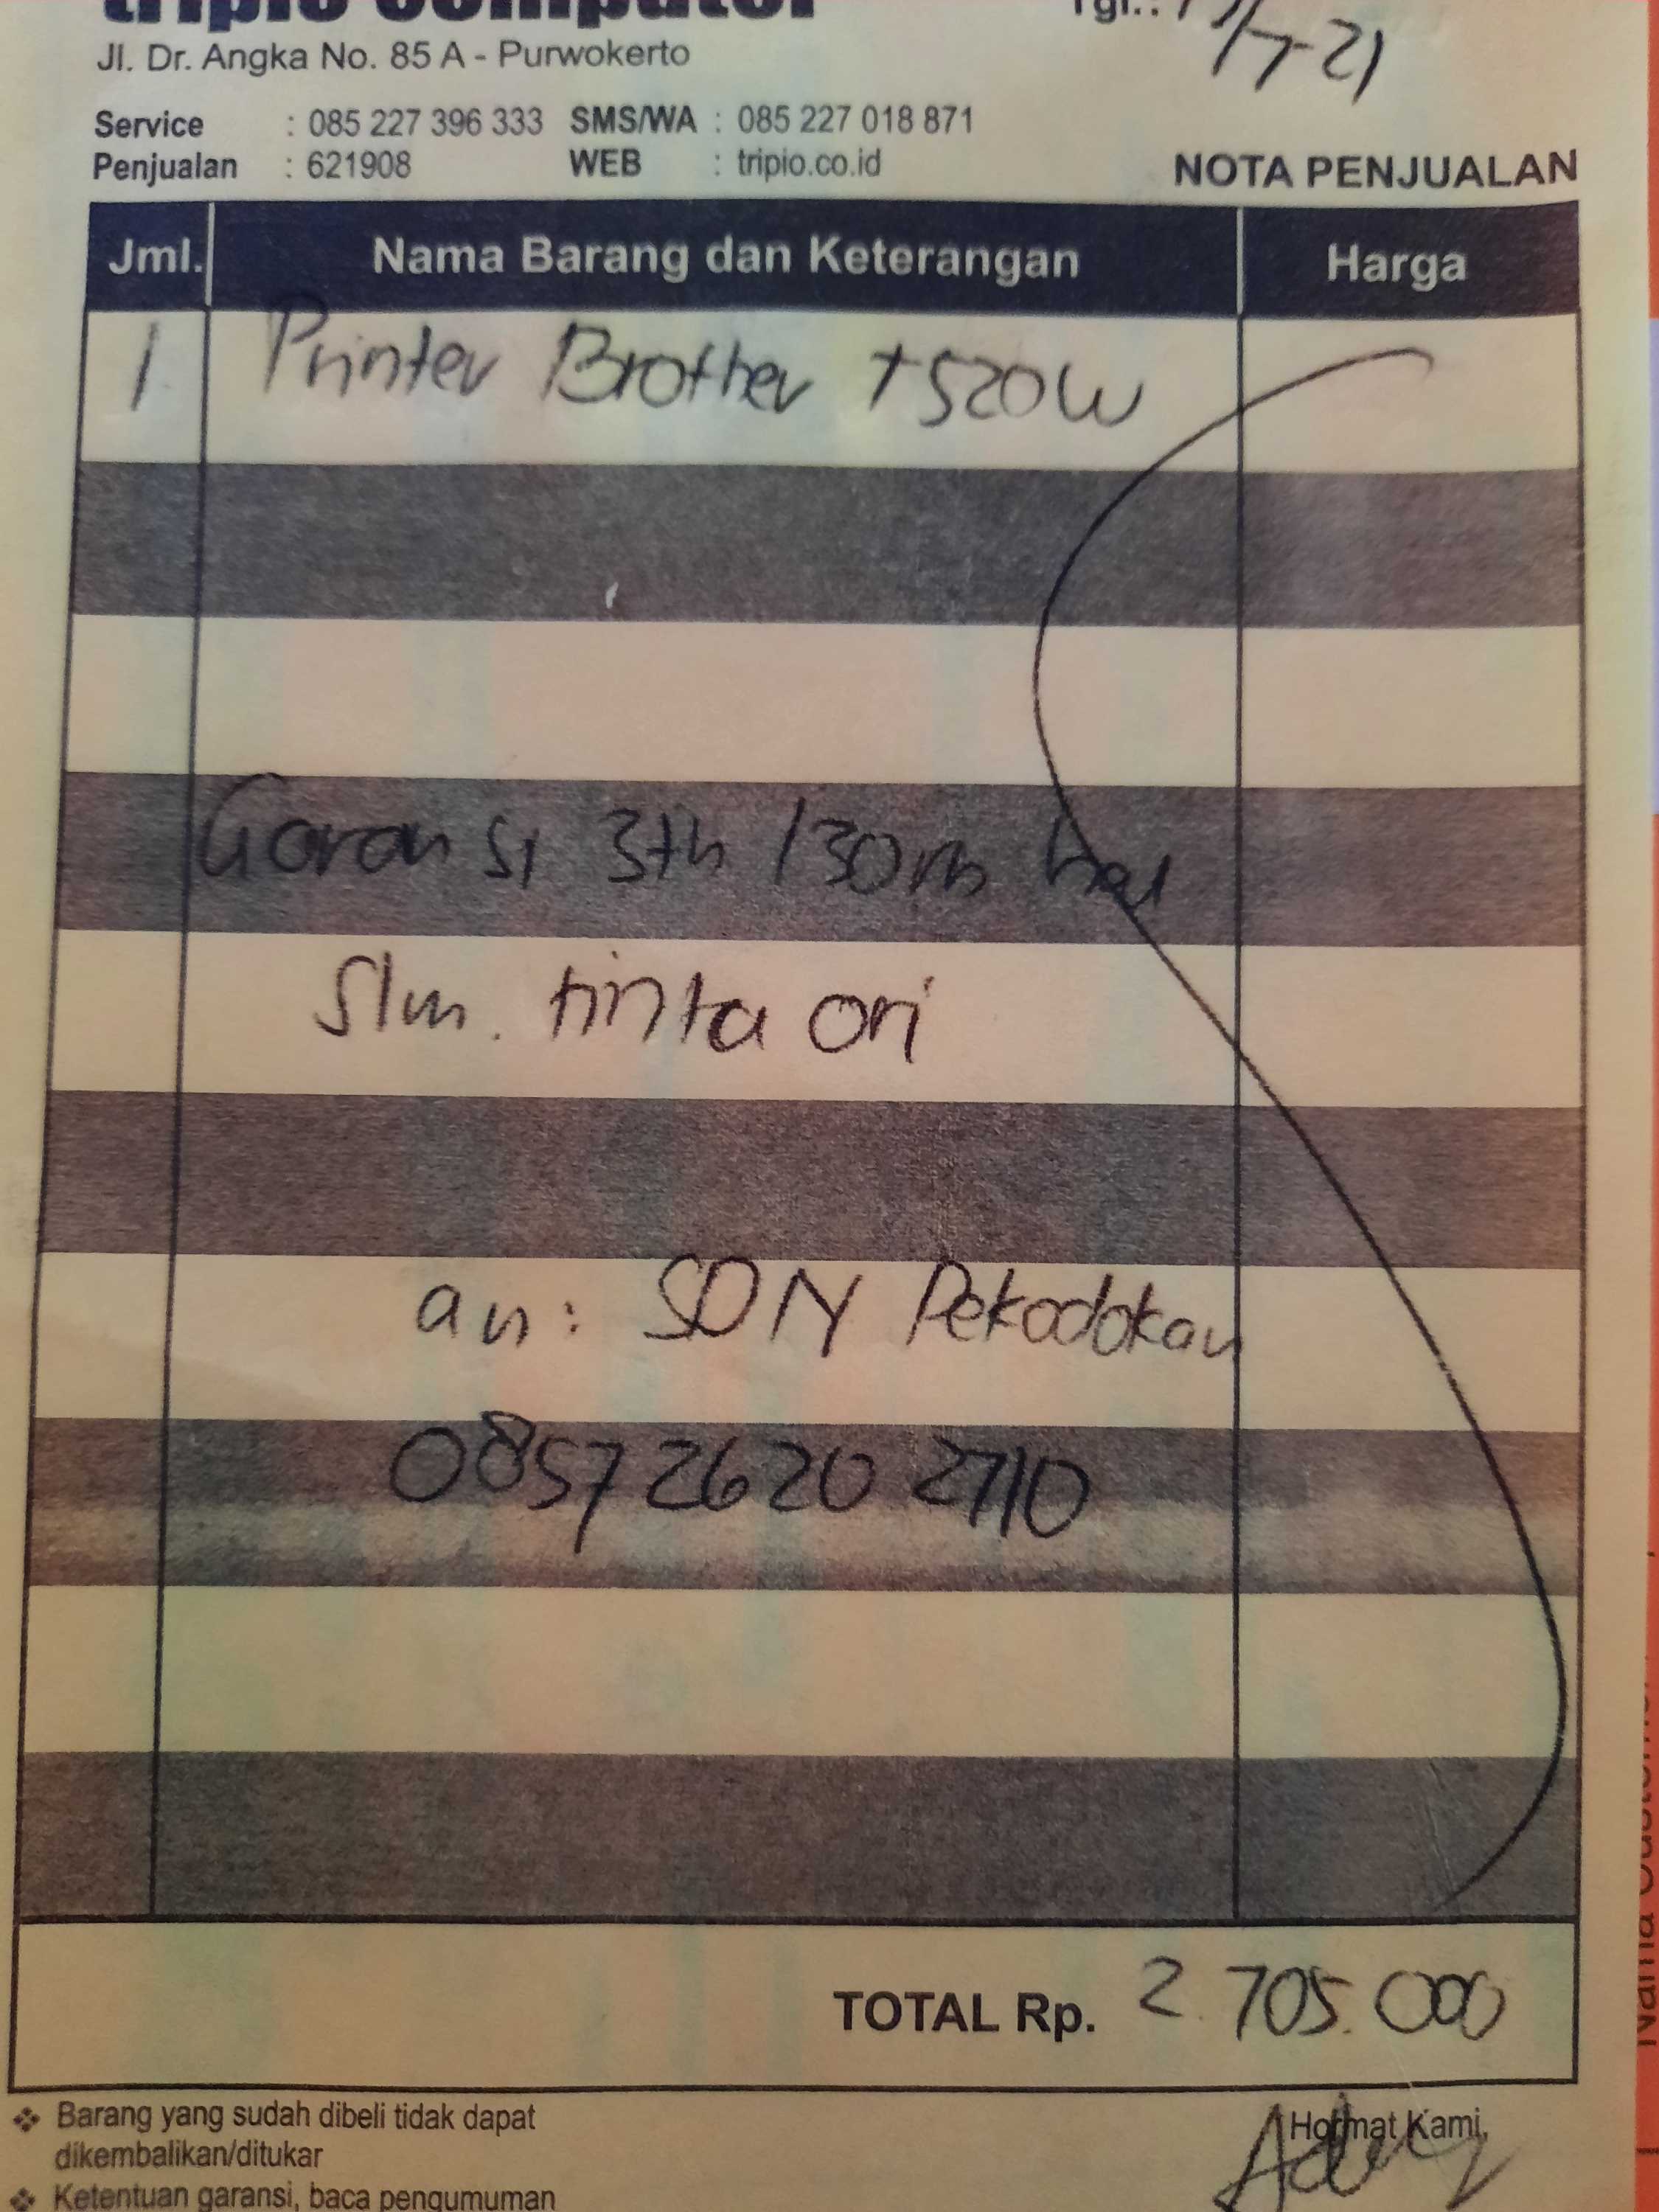 tripio computer
Tgl.: /7-21
Jl. Dr. Angka No. 85 A - Purwokerto
Service : 085 227 396 333 SMS/WA : 085 227 018 871
Penjualan : 621908 WEB : tripio.co.id
NOTA PENJUALAN
Jml. Nama Barang dan Keterangan Harga
1 Printer Brother T520W
Garansi 3th /30rb hal
Slm. tinta ori
an: SDN Pekodokan
0857 2620 2710
TOTAL Rp. 2.705.000
❖ Barang yang sudah dibeli tidak dapat
dikembalikan/ditukar
Hormat Kami,
❖ Ketentuan garansi, baca pengumuman